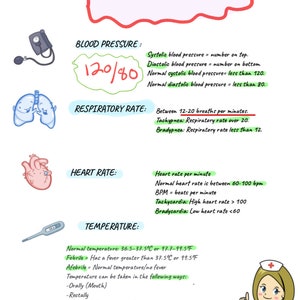 BLOOD PRESSURE :
120/80
Systolic blood pressure = number on top.
Diastolic blood pressure = number on bottom
Normal systolic blood pressure= less than 120.
Normal diastolic blood pressure = less than 80.
RESPIRATORY RATE:
Between 12-20 breaths per minutes.
Tachypnea: Respiratory rate over 20
Bradypnea: Respiratory rate less than 12.
HEART RATE:
Heart rate per minute
Normal heart rate is between 60-100 bpm
BPM = beats per minute
Tachycardia: High heart rate > 100
Bradycardia: Low heart rate <60
TEMPERATURE:
Normal temperature: 36.5-37.5°C or 97.7-99.5°F
Febrile = Has a fever greater than 37.5°C or 99.5°F
Afebrile = Normal temperature/no fever
Temperature can be taken in the following ways:
-Orally (Mouth)
-Rectally